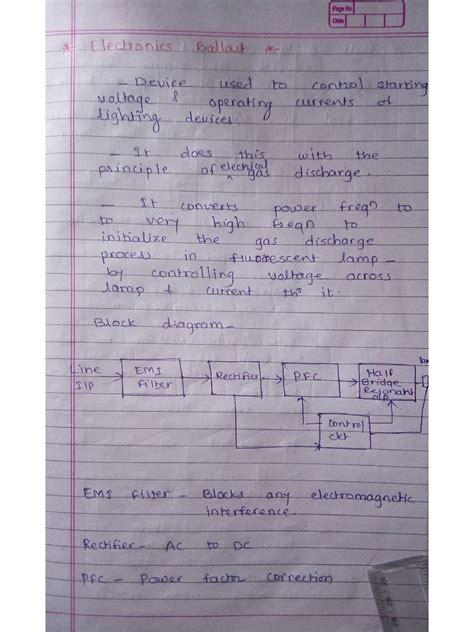 Page No.
Date
* Electronics Ballast *-
- Device used to control starting
voltage & operating currents of
lighting devices.
- It does this with the
principle of electrical gas discharge.
- It converts power freqn to
to very high freqn to
initialize the gas discharge
process in fluorescent lamp -
by controlling voltage across
lamp & current thr it.
Block diagram -
Line I/P
EMI Filter
Rectifier
PFC
Half Bridge Resonant O/P
Control ckt
EMI filter - Blocks any electromagnetic
interference.
Rectifier - AC to DC
PFC - Power factor correction